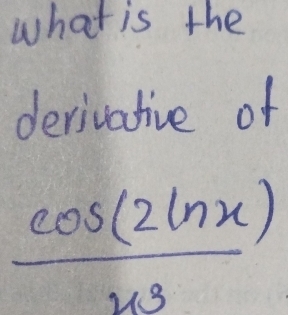 what is the
derivative of
cos(2lnx)
x3